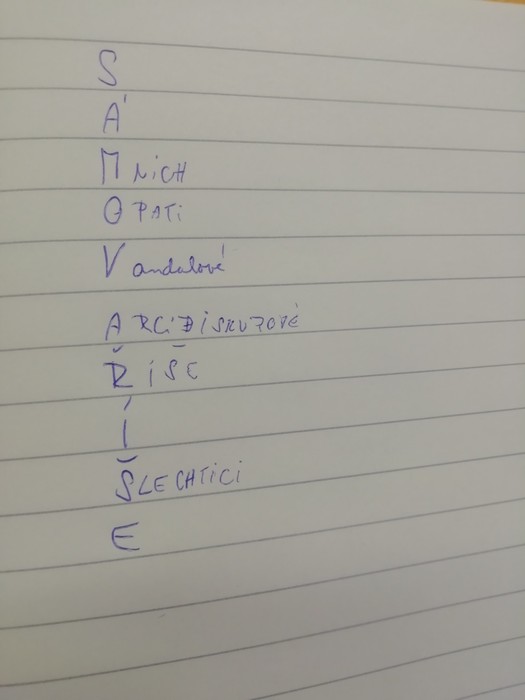 S
Á
MNICH
OPATI
Vandalové
ARCIBISKUPOVÉ
ŘÍŠE
Í
ŠLECHTICI
E